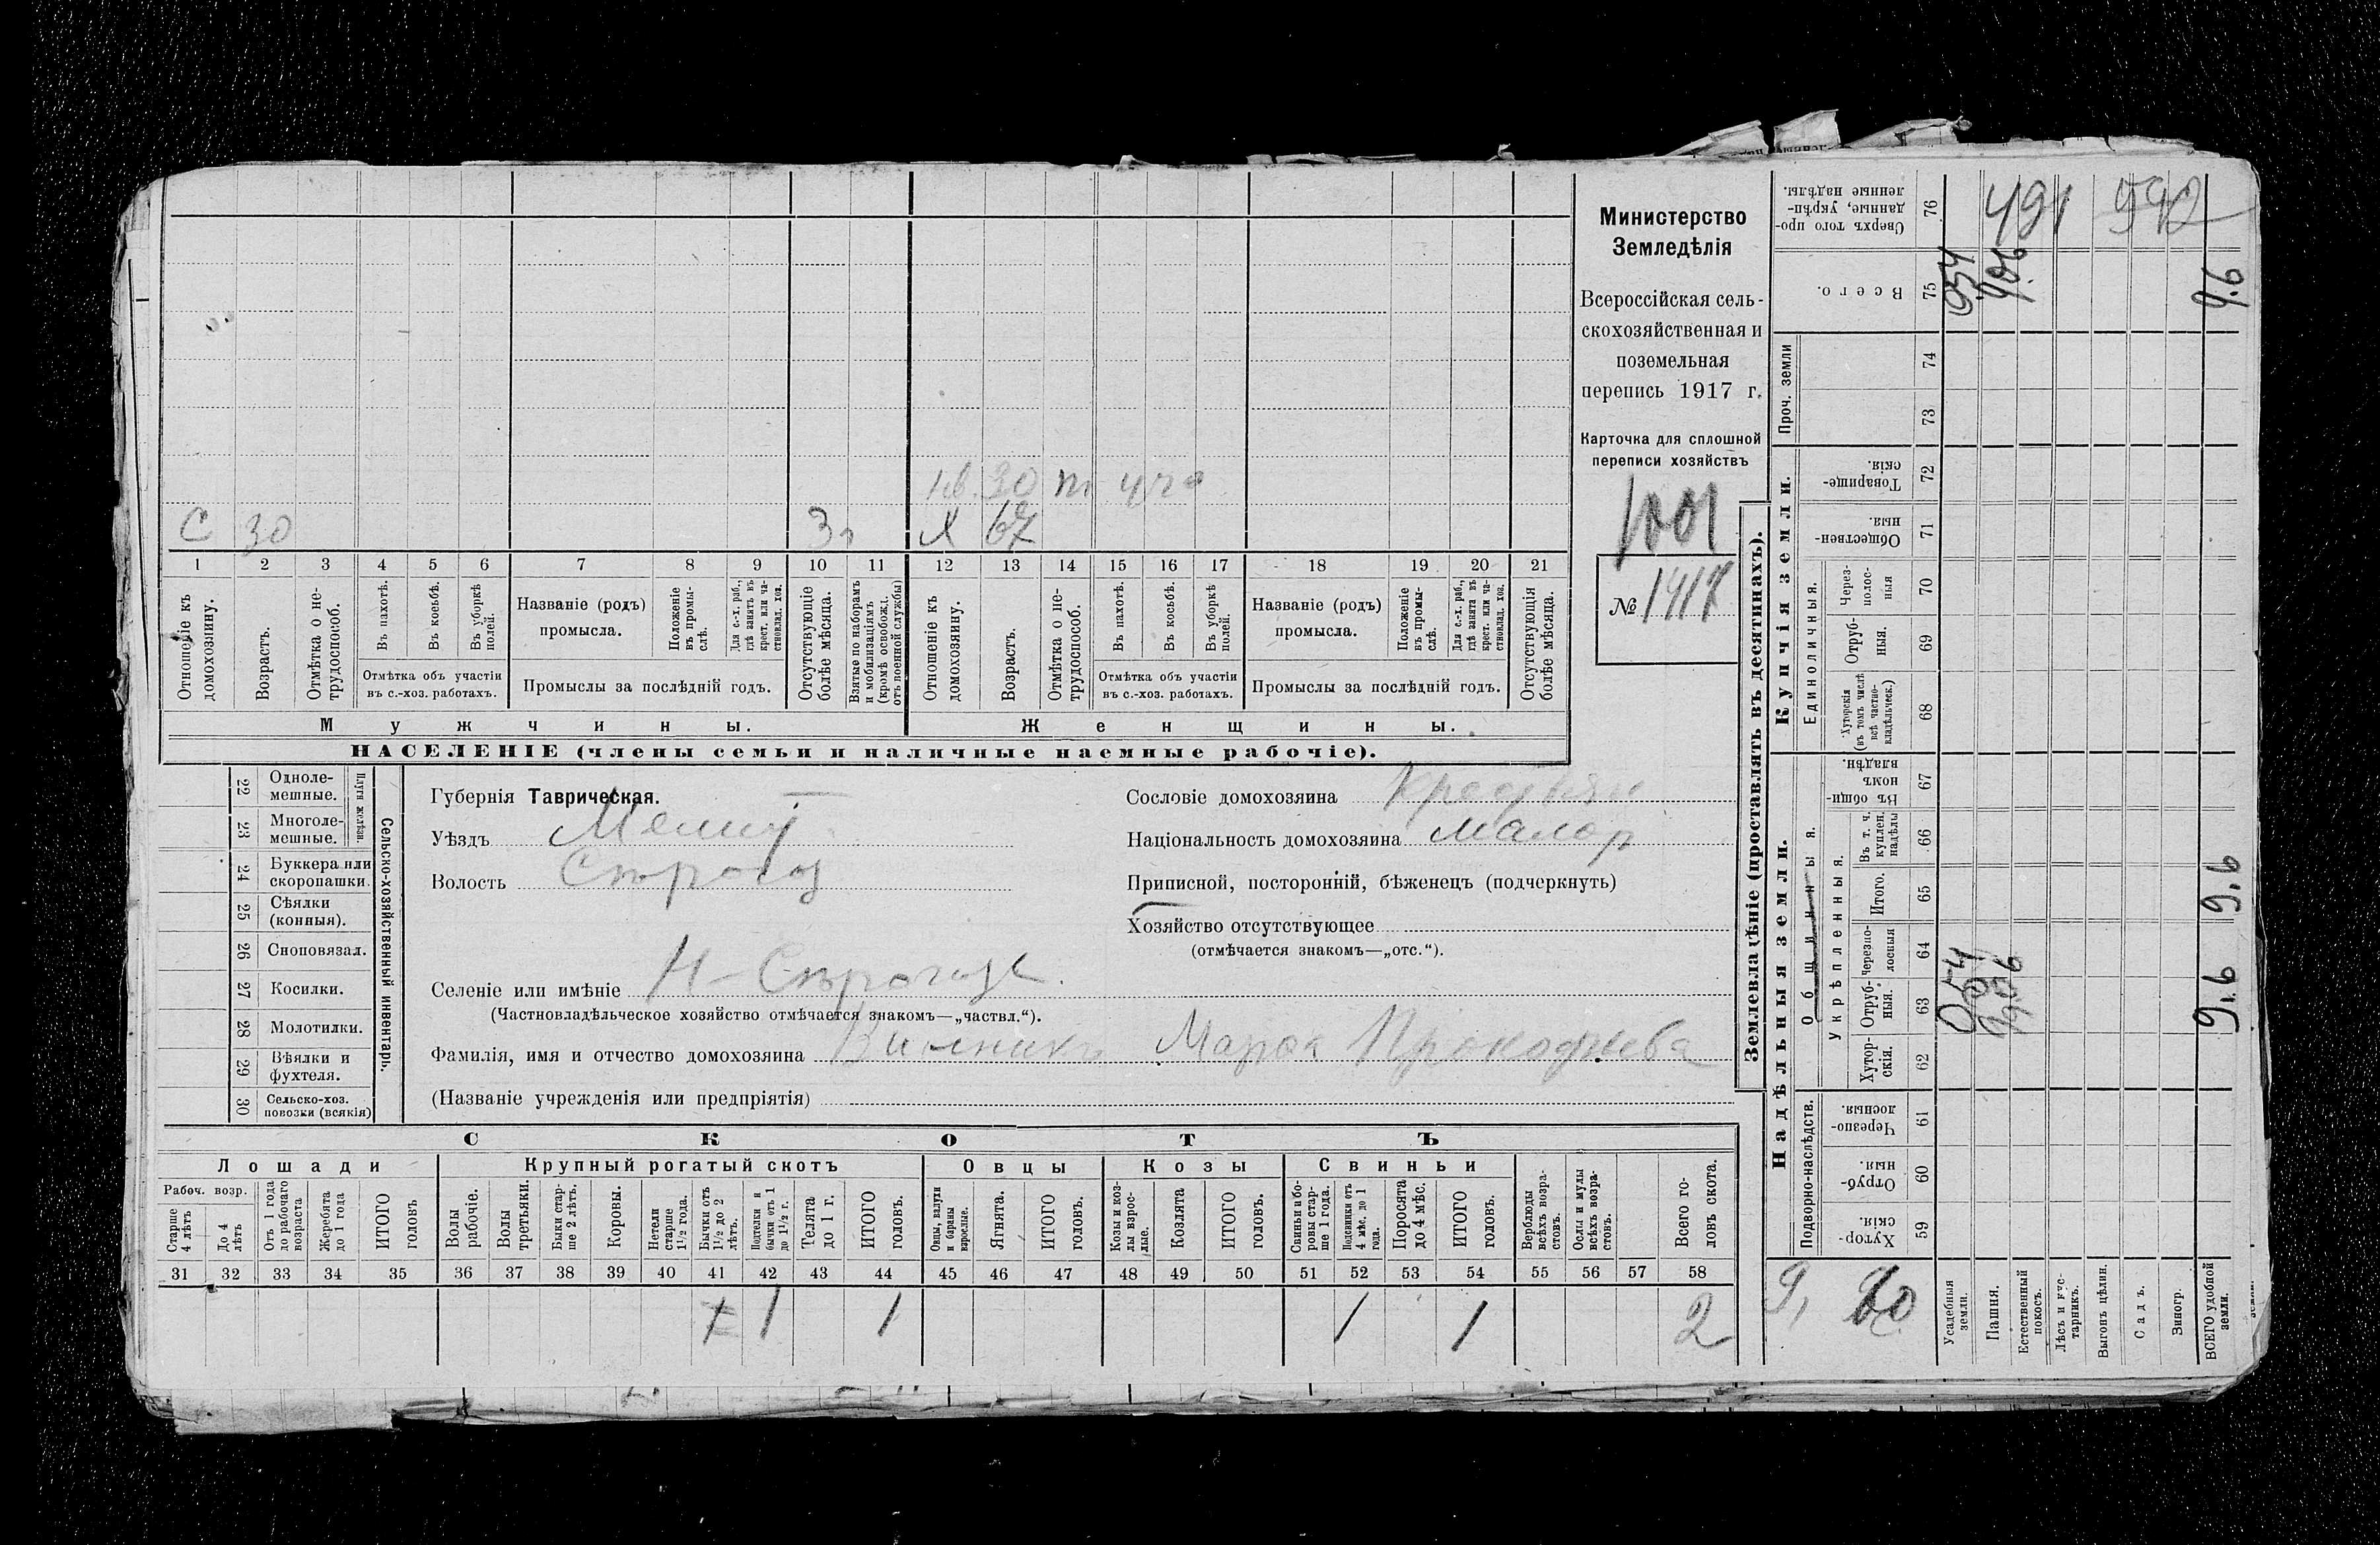 Министерство
Земледѣлія
Всероссійская сель-
скохозяйственная и
поземельная
перепись 1917 г.
Карточка для сплошной
переписи хозяйствъ
1001
№ 1417
нв. 30
С 30 67
1 2 3 4 5 6 7 8 9 10 11 12 13 14 15 16 17 18 19 20 21
Отношеніе къ домохозяину.
Возрастъ.
Отмѣтка о не-трудоспособ.
Въ пахотѣ.
Въ косьбѣ.
Въ уборкѣ полей.
Отмѣтка объ участіи въ с.-хоз. работахъ.
Названіе (родъ) промысла.
Положеніе въ промы-слѣ.
Для с.-х. раб., гдѣ занятъ въ крест. или ча-стновлад. хоз.
Промыслы за послѣдній годъ.
Отсутствующіе болѣе мѣсяца.
Взятые по наборамъ и мобилизаціямъ (кромѣ освобожд. отъ военной службы)
Отношеніе къ домохозяину.
Возрастъ.
Отмѣтка о не-трудоспособ.
Въ пахотѣ.
Въ косьбѣ.
Въ уборкѣ полей.
Отмѣтка объ участіи въ с.-хоз. работахъ.
Названіе (родъ) промысла.
Положеніе въ промы-слѣ.
Для с.-х. раб., гдѣ занята въ крест. или ча-стновлад. хоз.
Промыслы за послѣдній годъ.
Отсутствующія болѣе мѣсяца.
Мужчины. Женщины.
НАСЕЛЕНІЕ (члены семьи и наличные наемные рабочіе).
22 Одноле-мешные.
23 Многоле-мешные.
Плуги желѣзн.
24 Буккера или скоропашки.
25 Сѣялки (конныя).
26 Сноповязал.
27 Косилки.
28 Молотилки.
29 Вѣялки и фухтеля.
30 Сельско-хоз. повозки (всякія)
Сельско-хозяйственный инвентарь.
Губернія Таврическая.
Уѣздъ Мелит
Волость Сѣрогоз
Селеніе или имѣніе Н-Сѣрогозы
(Частновладѣльческое хозяйство отмѣчается знакомъ—„частвл.“).
Фамилія, имя и отчество домохозяина Марфа Прокофьева
(Названіе учрежденія или предпріятія)
Сословіе домохозяина Крестьян
Національность домохозяина Малор
Приписной, посторонній, бѣженецъ (подчеркнуть)
Хозяйство отсутствующее
(отмѣчается знакомъ—„отс.“).
СКОТЪ
Лошади Крупный рогатый скотъ Овцы Козы Свиньи
Рабоч. возр.
Старше 4 лѣтъ
До 4 лѣтъ
Отъ 1 года до рабочаго возраста
Жеребята до 1 года
ИТОГО головъ
Волы рабочіе.
Волы третьяки.
Быки стар-ше 2 лѣтъ.
Коровы.
Нетели старше 1½ года.
Бычки отъ 1½ до 2 лѣтъ.
Подтелки и бычки отъ 1 до 1½ г.
Телята до 1 г.
ИТОГО головъ.
Овцы, валухи и бараны взрослые.
Ягнята.
ИТОГО головъ.
Козы и коз-лы взрос-лые.
Козлята
ИТОГО головъ.
Свиньи и бо-ровы стар-ше 1 года.
Подсвинки отъ 4 мѣс. до 1 года.
Поросята до 4 мѣс.
ИТОГО головъ.
Верблюды всѣхъ возра-стовъ.
Ослы и мулы всѣхъ возра-стовъ.
Всего го-ловъ скота.
31 32 33 34 35 36 37 38 39 40 41 42 43 44 45 46 47 48 49 50 51 52 53 54 55 56 57 58
1 1 1 1 2
Землевладѣніе (проставлять въ десятинахъ).
Надѣльныя земли. Купчія земли. Проч. земли
Подворно-наслѣдств. Общинныя. Единоличныя.
Укрѣпленныя.
Хутор-скія. 59
Отруб-ныя. 60
Черезпо-лосныя. 61
Хутор-скія. 62
Отруб-ныя. 63
Черезпо-лосныя 64
Итого. 65
Въ т. ч. куплен. надѣлы 66
Въ общи-номъ владѣн. 67
Хуторскія (въ томъ числѣ всѣ частно-владѣльческ.) 68
Отруб-ныя. 69
Через-полос-ныя 70
Обществен-ныя. 71
Товарище-скія. 72
73
74
Всего. 75
Сверхъ того про-данные, укрѣп-ленные надѣлы. 76
Усадебныя земли. 0.54
Пашня. 9.06
Естественный покосъ.
Лѣсъ и кус-тарникъ.
Выгонъ цѣлин.
Садъ.
Виногр.
ВСЕГО удобной земли. 9.6 9.6 9.6
491 592